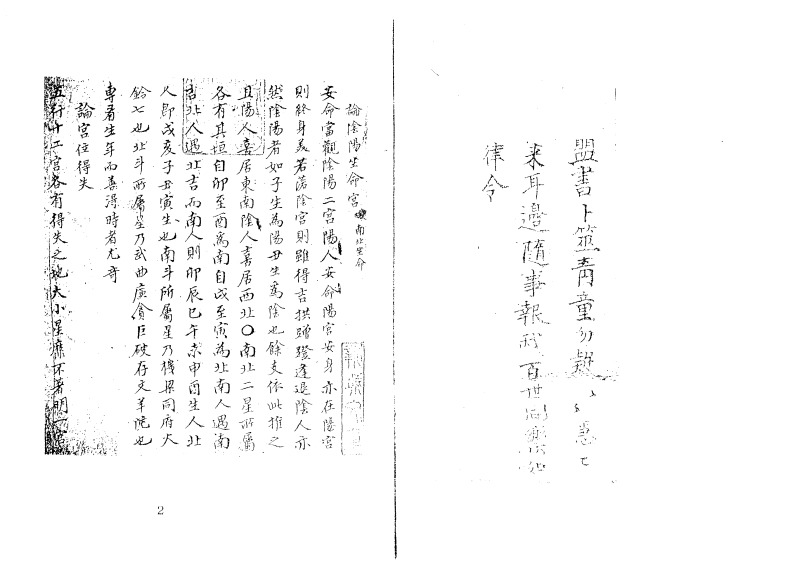 盟書卜筮青童勿疑
来耳邊隨事報我百世同
律令
論陰陽生命宮 南北生命
安命當觀陰陽二宮陽人安命陽宮安身亦在陽宮
則終身美若落陰宮則雖得吉拱蹭蹬蹇退陰人亦
然陰陽者如子生為陽丑生為陰也餘支依此推之
且陽人喜居東南陰人喜居西北〇南北二星所屬
各有其垣自卯至酉為南自戌至寅為北南人遇南
吉北人遇北吉而南人則卯辰巳午未申酉生人北
人即戌亥子丑寅生也南斗所屬星乃機梁同府火
鈴七也北斗所屬星乃武曲廉貪巨破存文羊陀也
專看生年而善得時者尤奇
論宮位得失
五行十二宮各有得失之地大小星
2